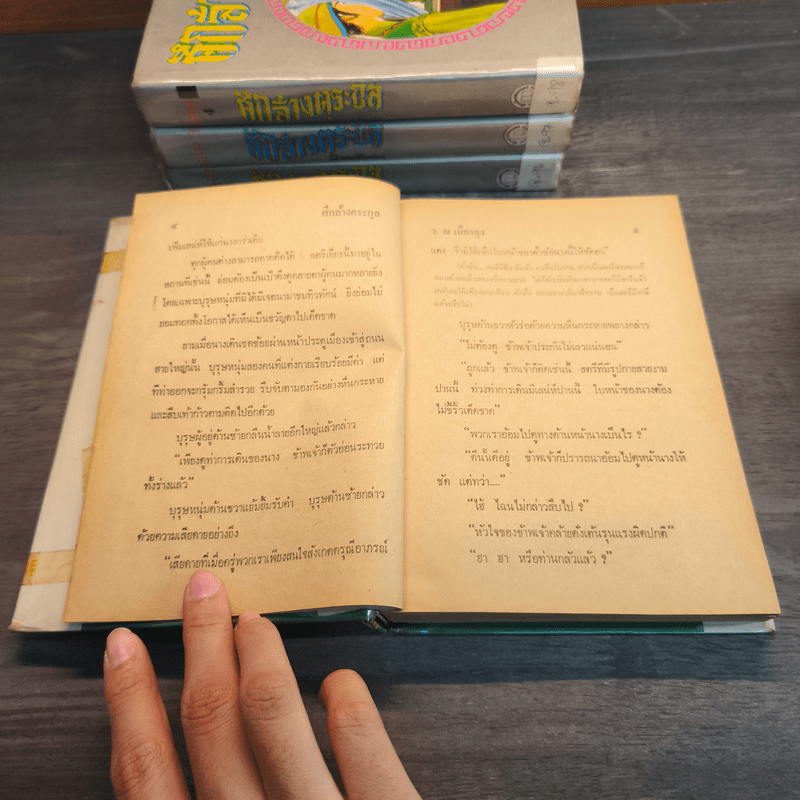 ศึกล้างตระกูล
4
ศึกล้างตระกูล
ศึกล้างตระกูล
๔ ศึกล้างตระกูล
เพิ่มเสน่ห์ให้แก่นางกว่าเดิม
ทุกผู้คนต่างสามารถคาดคิดได้ สตรีเยี่ยงนี้มาอยู่ใน
สถานที่เช่นนี้ ย่อมต้องเป็นเป้าดึงดูดสายตาผู้คนมากหลายยิ่ง
โดยเฉพาะบุรุษหนุ่มที่มิได้มีเจตนามาชมทิวทัศน์ ยิ่งย่อมไม่
ยอมทอดทิ้งโอกาสได้เห็นเป็นขวัญตาไปเด็ดขาด
ยามเมื่อนางเดินชดช้อยผ่านหน้าประตูเมืองเข้าสู่ถนน
สายใหญ่นั้น บุรุษหนุ่มสองคนที่แต่งกายเรียบร้อยมีค่า แต่
ทีท่าออกจะกรุ้มกริ่มสำรวย รีบจับตามองกันอย่างหื่นกระหาย
และสืบเท้าก้าวตามติดไปอีกด้วย
บุรุษผู้อยู่ด้านซ้ายกลืนน้ำลายอึกใหญ่แล้วกล่าว
“เพียงดูท่าการเดินของนาง ข้าพเจ้าก็ตัวอ่อนระทวย
ทั้งร่างแล้ว”
บุรุษหนุ่มด้านขวาแย้มยิ้มรับคำ บุรุษด้านซ้ายกล่าว
ด้วยความเสียดายอย่างยิ่ง
“เสียดายที่เมื่อครู่พวกเราเพียงสนใจสังเกตดรุณีอาภรณ์
ว. ณ เมืองลุง ๕
แดง จึงมิได้เห็นใบหน้าของ
บุรุษด้านขวาหัวร่อด้วยความหื่นกระหายพลางกล่าว
“ไม่ต้องดู ข้าพเจ้าประกันไม่เลวแน่นอน”
“ถูกแล้ว ข้าพเจ้าก็คิดเช่นนี้ สตรีที่มีรูปกายสวยงาม
ปานนี้ ท่วงท่าการเดินมีเสน่ห์ปานนี้ ใบหน้าของนางต้อง
ไม่ขี้ริ้วเด็ดขาด”
“พวกเราอ้อมไปดูทางด้านหน้านางเป็นไร ?”
“ดีนั้นดีอยู่ ข้าพเจ้าก็ปรารถนาอ้อมไปดูหน้านางให้
ชัด แต่ทว่า....”
“ไฮ้ ไฉนไม่กล่าวสืบไป ?”
“หัวใจของข้าพเจ้าคล้ายดั่งเต้นรุนแรงผิดปกติ”
“ฮา ฮา หรือท่านกลัวแล้ว ?”